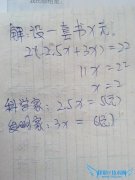 解:设一套书x元。
2(2.5x+3x)=22
11x=22
x=2
科学家:2.5x=5(元)
3x=(元)